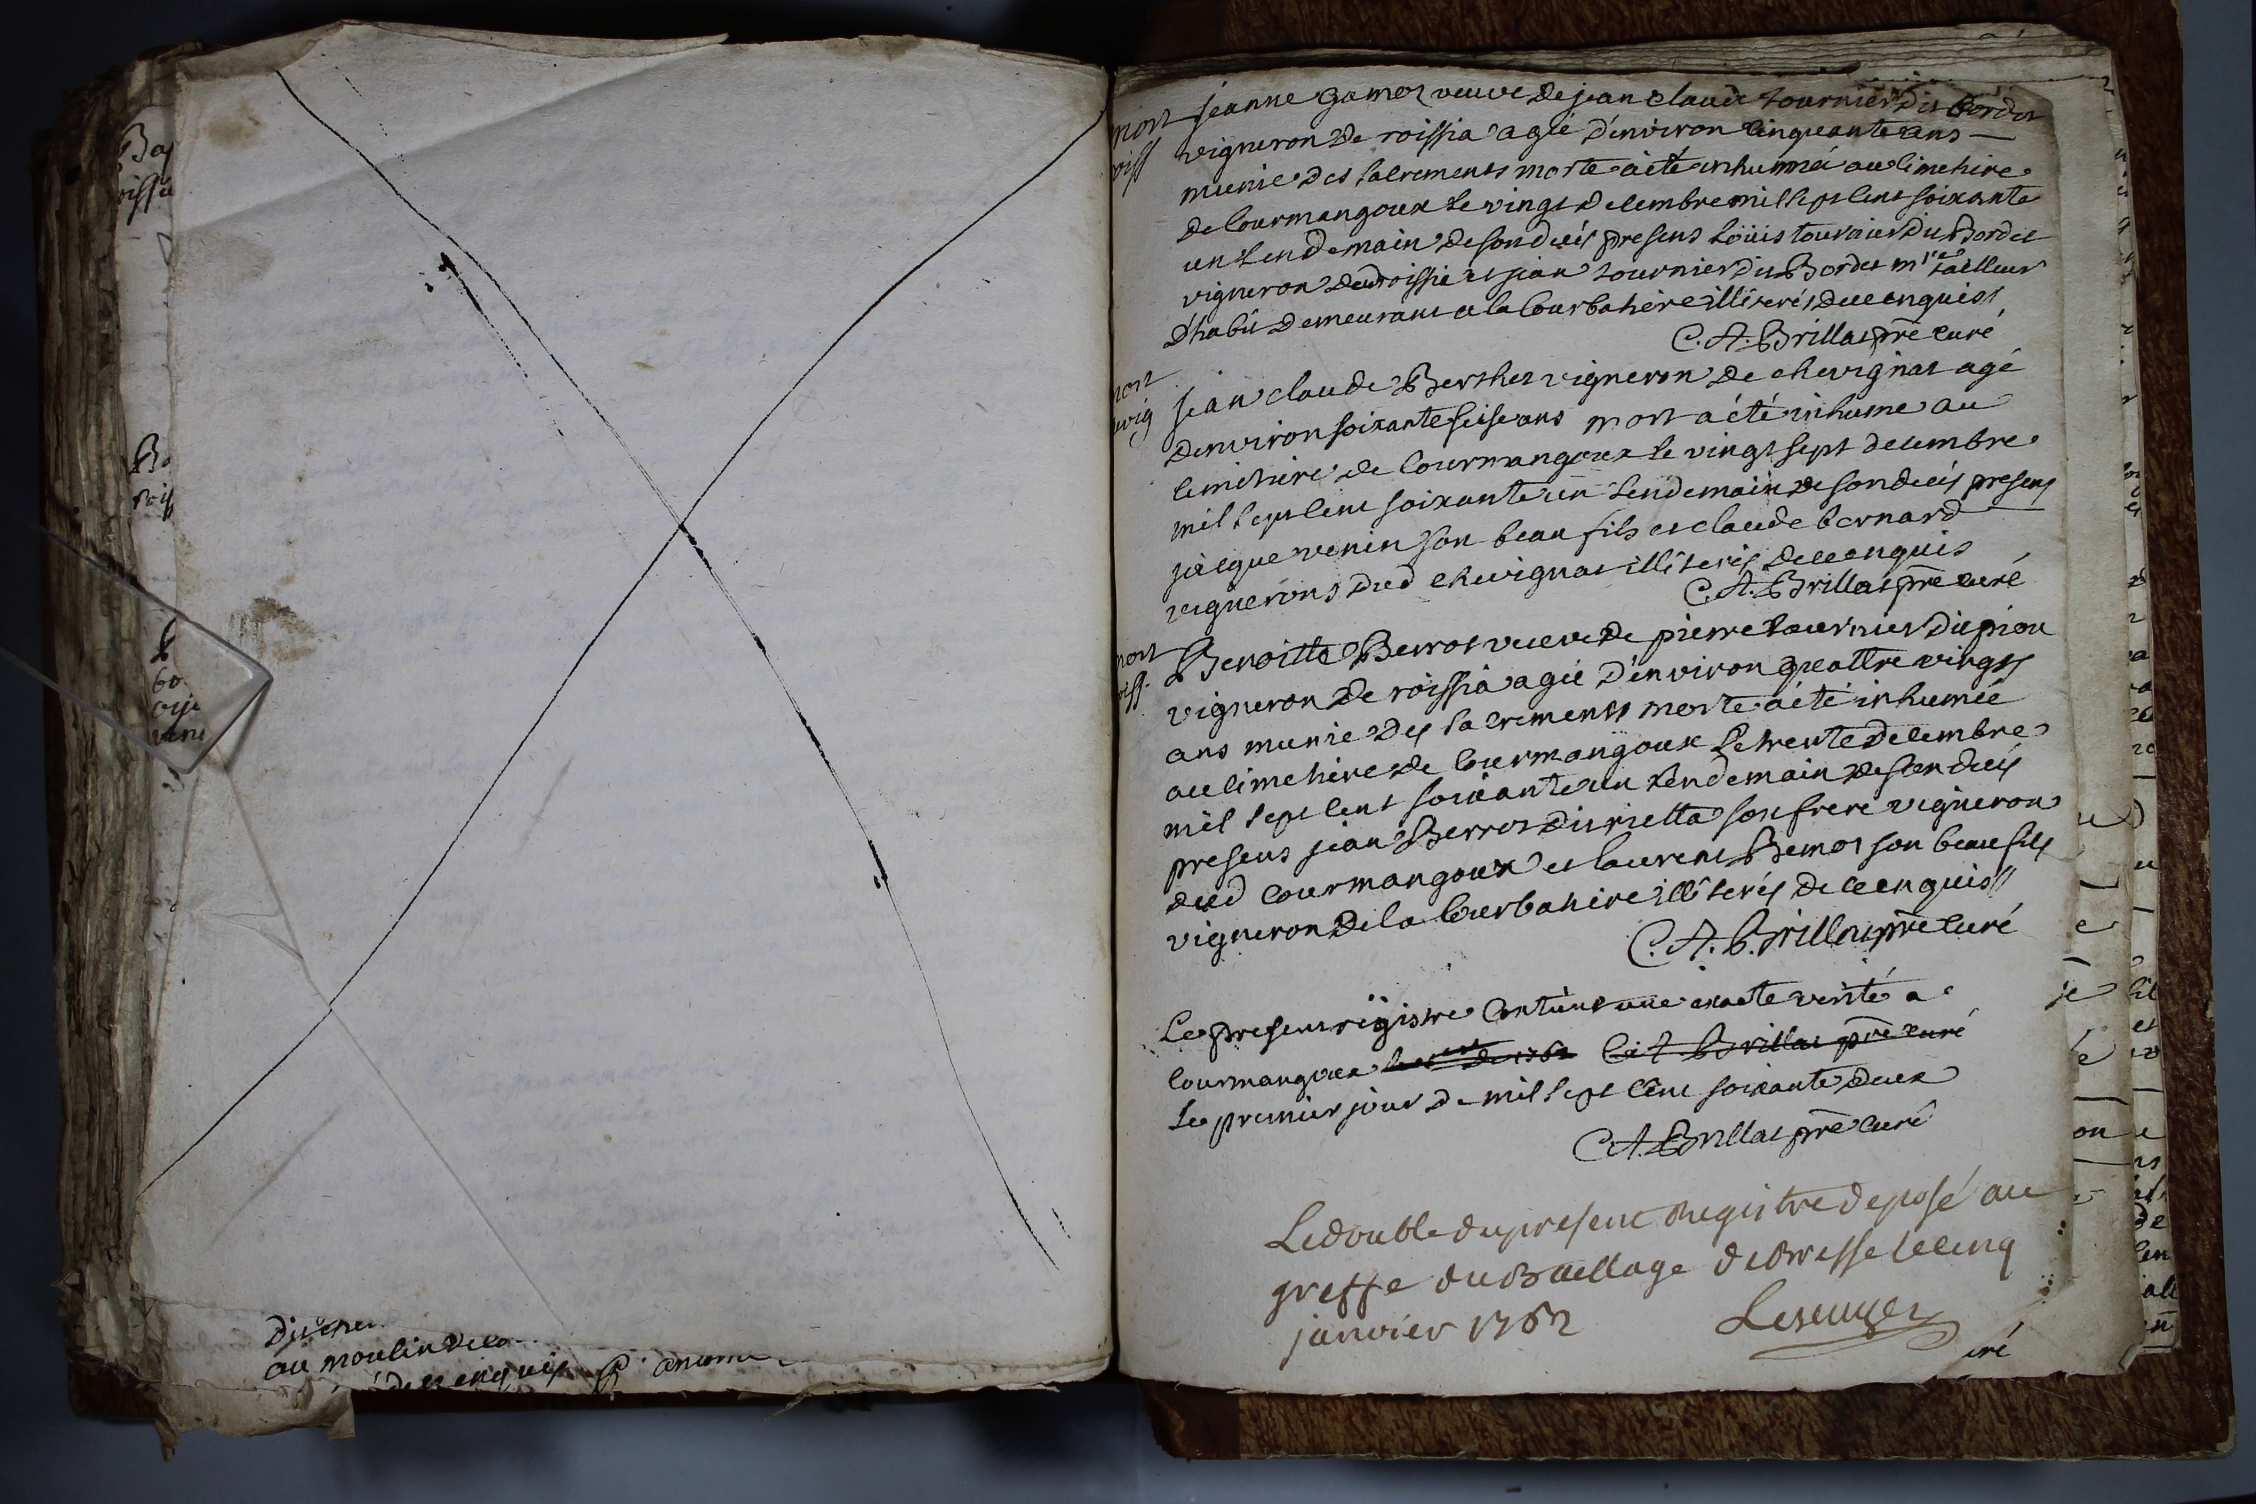 mort
roiss
jeanne gamot veuve de jean claude tournier dit bordet
vigneron de roissia agée d'environ cinquante ans
munie des sacrements morte a été inhumée au cimetiere
de Courmangoux le vingt decembre mil sept cent soixante
un lendemain de son decés presens Loüis tournier dit Bordet
vigneron dud roissia et jean tournier dit Bordet mtre tailleur
d'habit demeurant a la Courbatiere illiterés de ce enquis
C. A. Brillat prê curé
mort
vig
jean claude Berthet vigneron de chevignat agé
denviron soixante seise ans mort a été inhume au
cimetiere de Courmangoux le vingt sept decembre
mil sept cent soixante un lendemain de son decés presens
jacque venin son beau fils et claude bernard
vignerons dud chevignat illiterés de ce enquis
C. A. Brillat prê curé
mort
roiss.
Benoitte Berrot veuve de pierre tournier dit piou
vigneron de roissia agée d'environ quattre vingts
ans munie des sacrements morte a été inhumée
au cimetiere de Courmangoux le trente decembre
mil sept cent soixante un lendemain de son decés
presens jean Berrot dit rietta son frere vigneron
dud Courmangoux et laurent Bemot son beau fils
vigneron de la Courbatiere illiterés de ce enquis
C. A. Brillat prê curé
Le present régistre Contient une exacte verité a
Courmangoux le 1er de 1762 C. A. Brillat prê curé
le premier jour de mil sept cent soixante deux
C. A. Brillat prê curé
Le double du present Registre deposé au
greffe du Baillage de Bresse le cinq
janvier 1762
au moulin de
de ce enquis